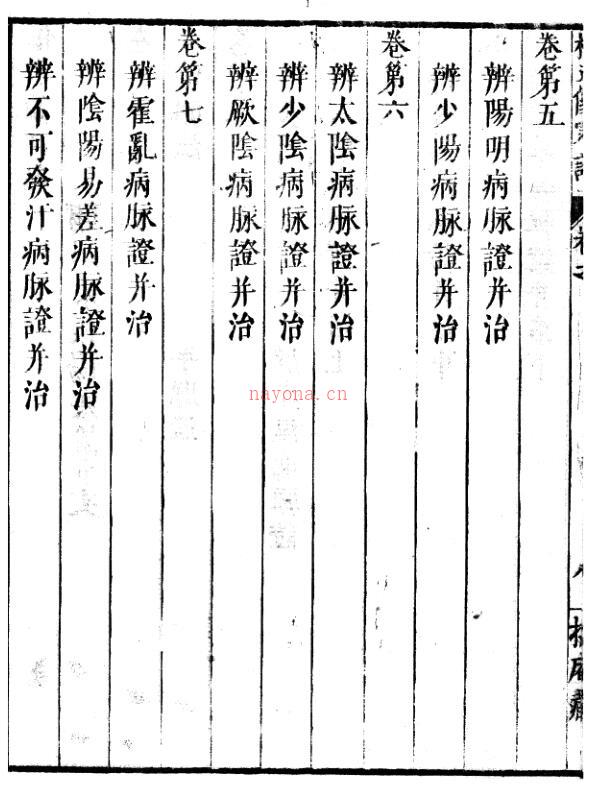 卷第五
辨陽明病脉證并治
辨少陽病脉證并治
卷第六
辨太陰病脉證并治
辨少陰病脉證并治
辨厥陰病脉證并治
卷第七
辨霍亂病脉證并治
辨陰陽易差病脉證并治
辨不可發汗病脉證并治
nayona.cn